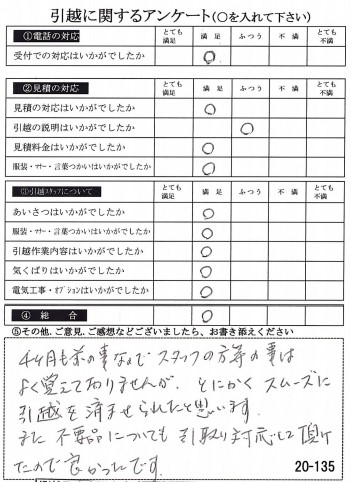 引越に関するアンケート(○を入れて下さい)
①電話の対応 とても満足 満足 ふつう 不満 とても不満
受付での対応はいかがでしたか ○
②見積の対応 とても満足 満足 ふつう 不満 とても不満
見積の対応はいかがでしたか ○
引越の説明はいかがでしたか ○
見積料金はいかがでしたか ○
服装・マナー・言葉つかいはいかがでしたか ○
③引越スタッフについて とても満足 満足 ふつう 不満 とても不満
あいさつはいかがでしたか ○
服装・マナー・言葉つかいはいかがでしたか ○
引越作業内容はいかがでしたか ○
気くばりはいかがでしたか ○
電気工事・オプションはいかがでしたか ○
④ 総 合 ○
⑤その他、ご意見、ご感想などございましたら、お書き添えください
4ヶ月も前の事なので スタッフの方等の事は
よく覚えておりませんが、とにかく スムーズに
引越を済ませられたと思います。
また 不要品についても 引取り対応して頂け
たので良かったです。
20-135